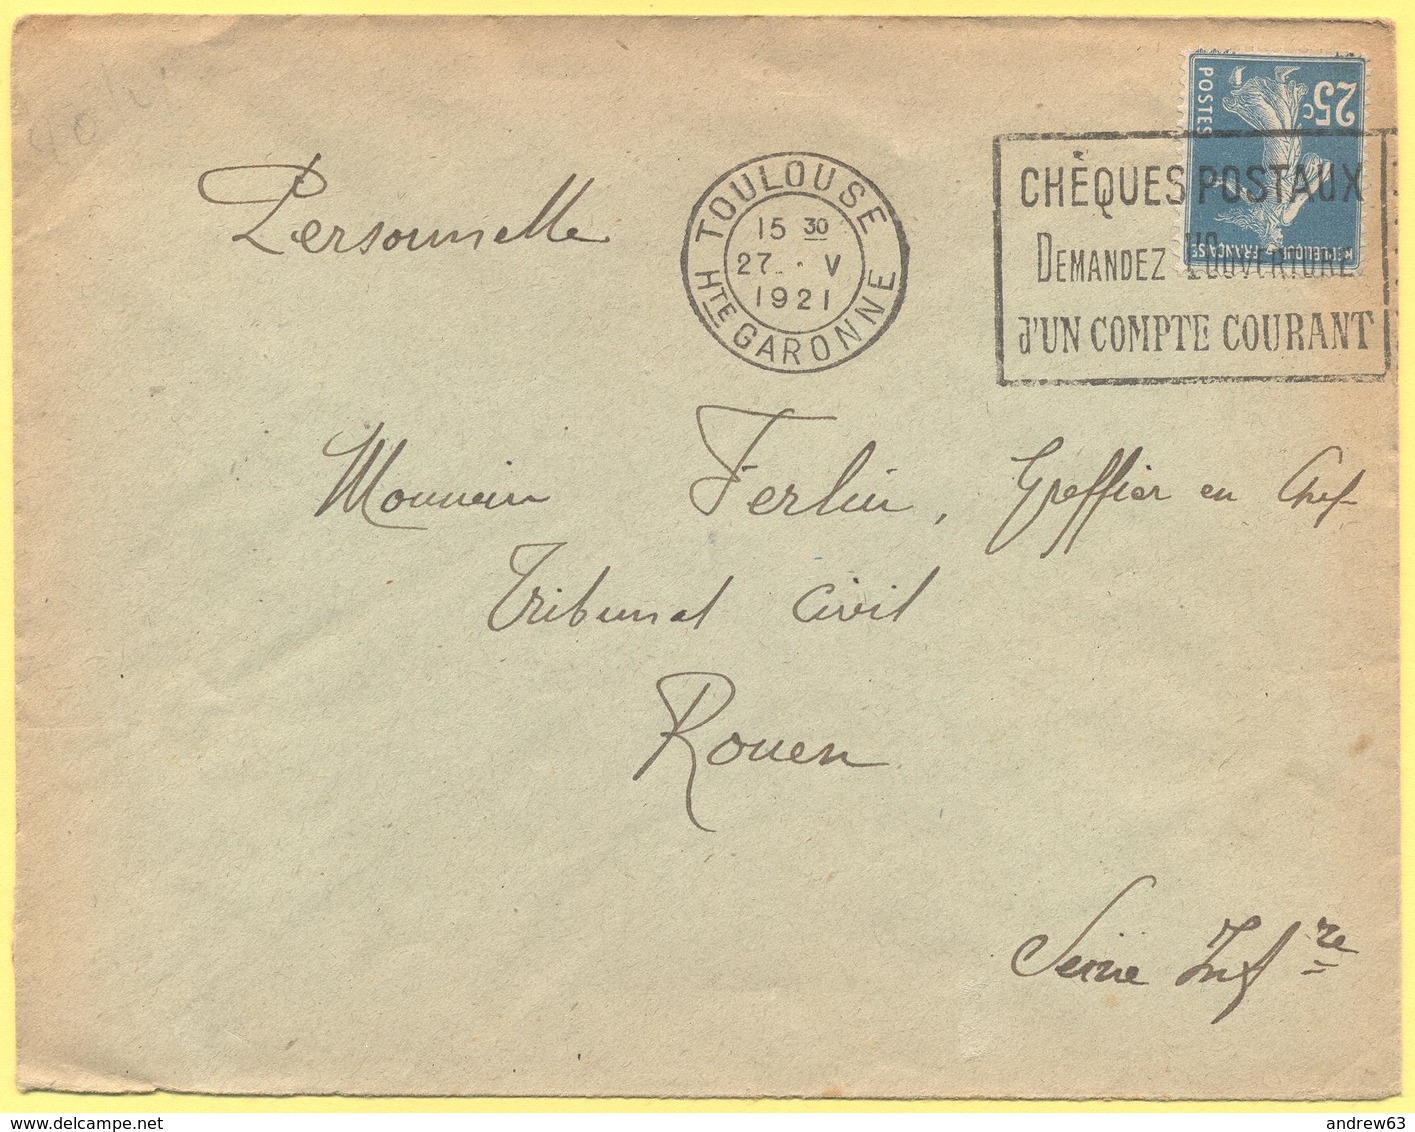 POSTES
25c
REPUBLIQUE FRANÇAISE
TOULOUSE
15 30
27 · V
1921
HTE GARONNE
CHÈQUES POSTAUX
DEMANDEZ L'OUVERTURE
d'UN COMPTE COURANT
Personnelle
Monsieur Ferlin, Greffier en Chef
Tribunal Civil
Rouen
Seine Infre
andrew63